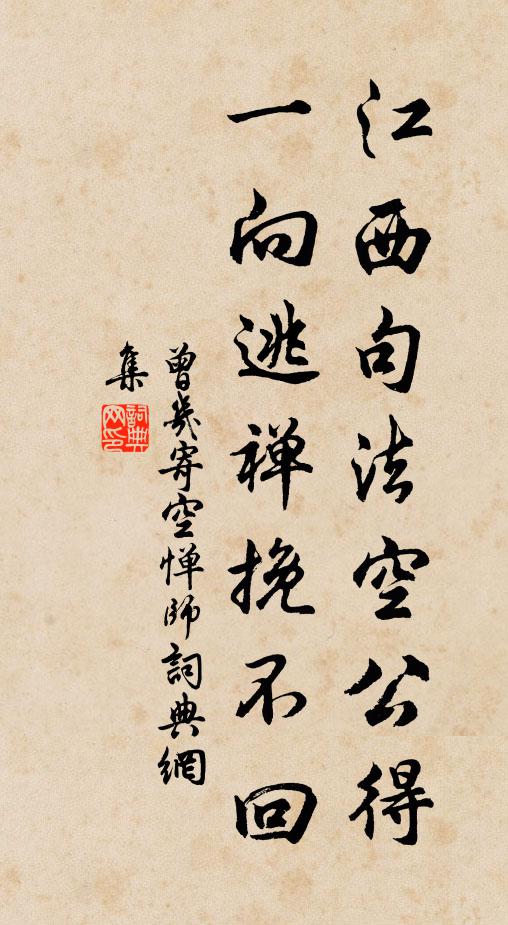 江西句法空公得
一向逃禅挽不回
曾几寄空惮师詞典網
集
詞典网印